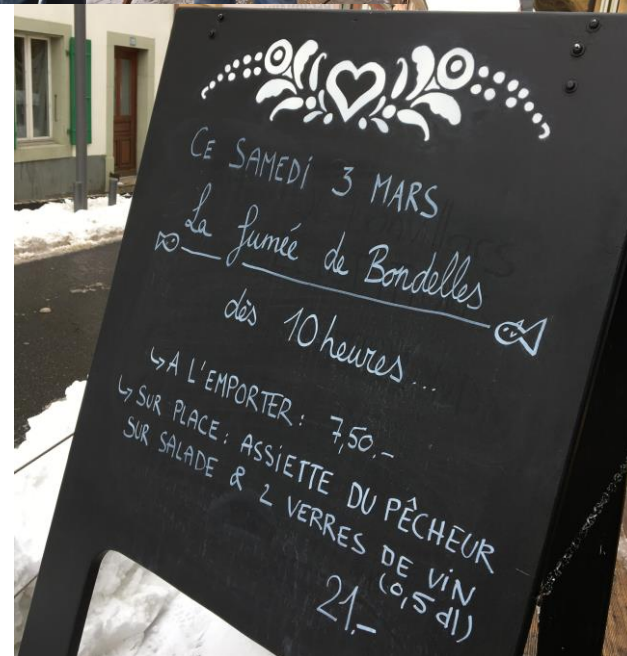 CE SAMEDI 3 MARS
La fumée de Bondelles
dès 10 heures...
↳ A L'EMPORTER: 7,50.-
↳ SUR PLACE: ASSIETTE DU PÊCHEUR
SUR SALADE & 2 VERRES DE VIN
(0,5 dl)
21.-